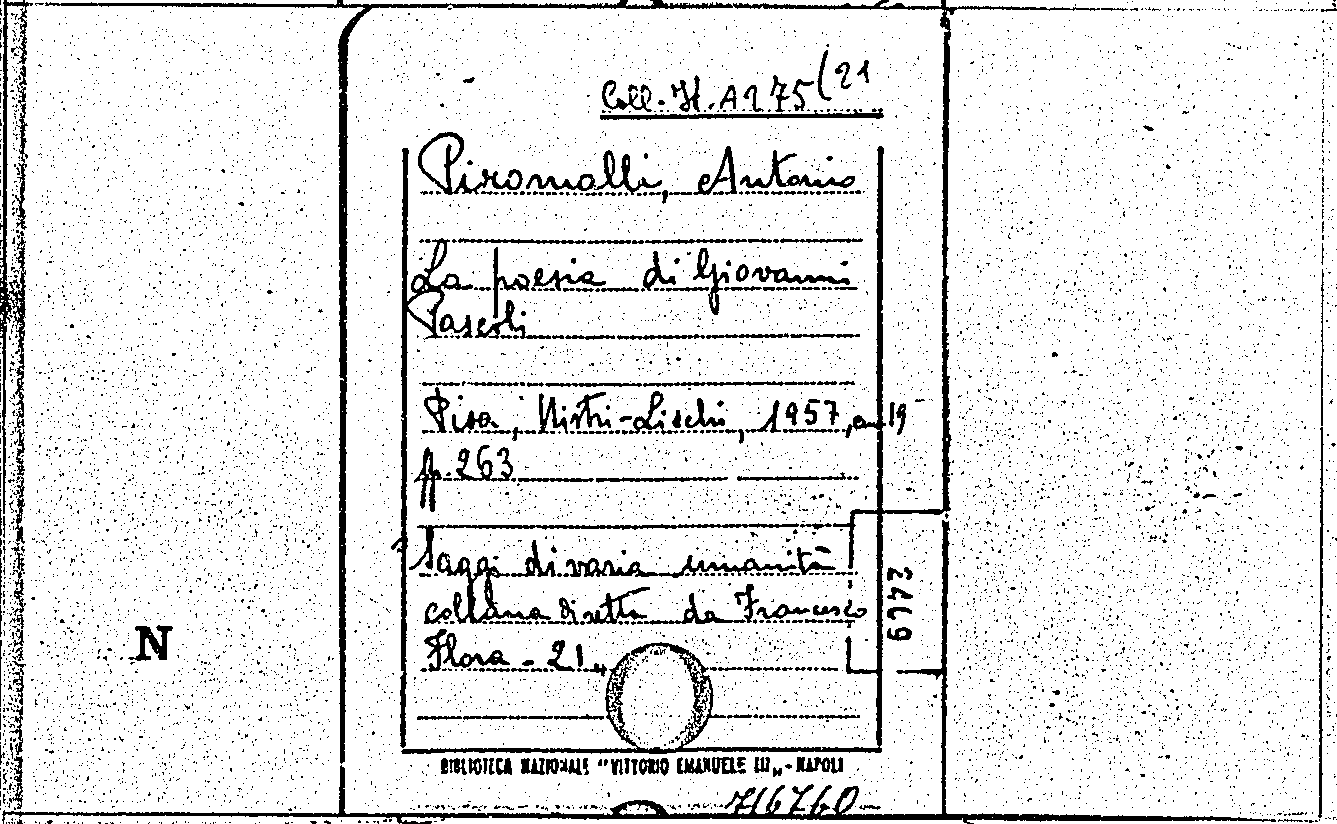 Coll. H. A 175 (21
Piromalli, Antonio
La poesia di Giovanni
Pascoli
Pisa, Nistri-Lischi, 1957, in 19
pp. 263
Saggi di varia umanità
collana diretta da Francesco
Flora - 21 „
N
BIBLIOTECA NAZIONALE "VITTORIO EMANUELE III„ - NAPOLI
716760